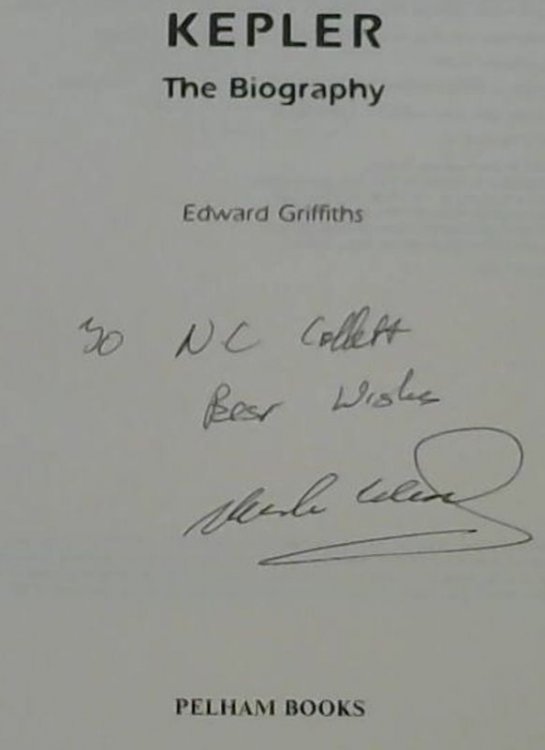 KEPLER
The Biography
Edward Griffiths
To NC Collett
Best Wishes
PELHAM BOOKS